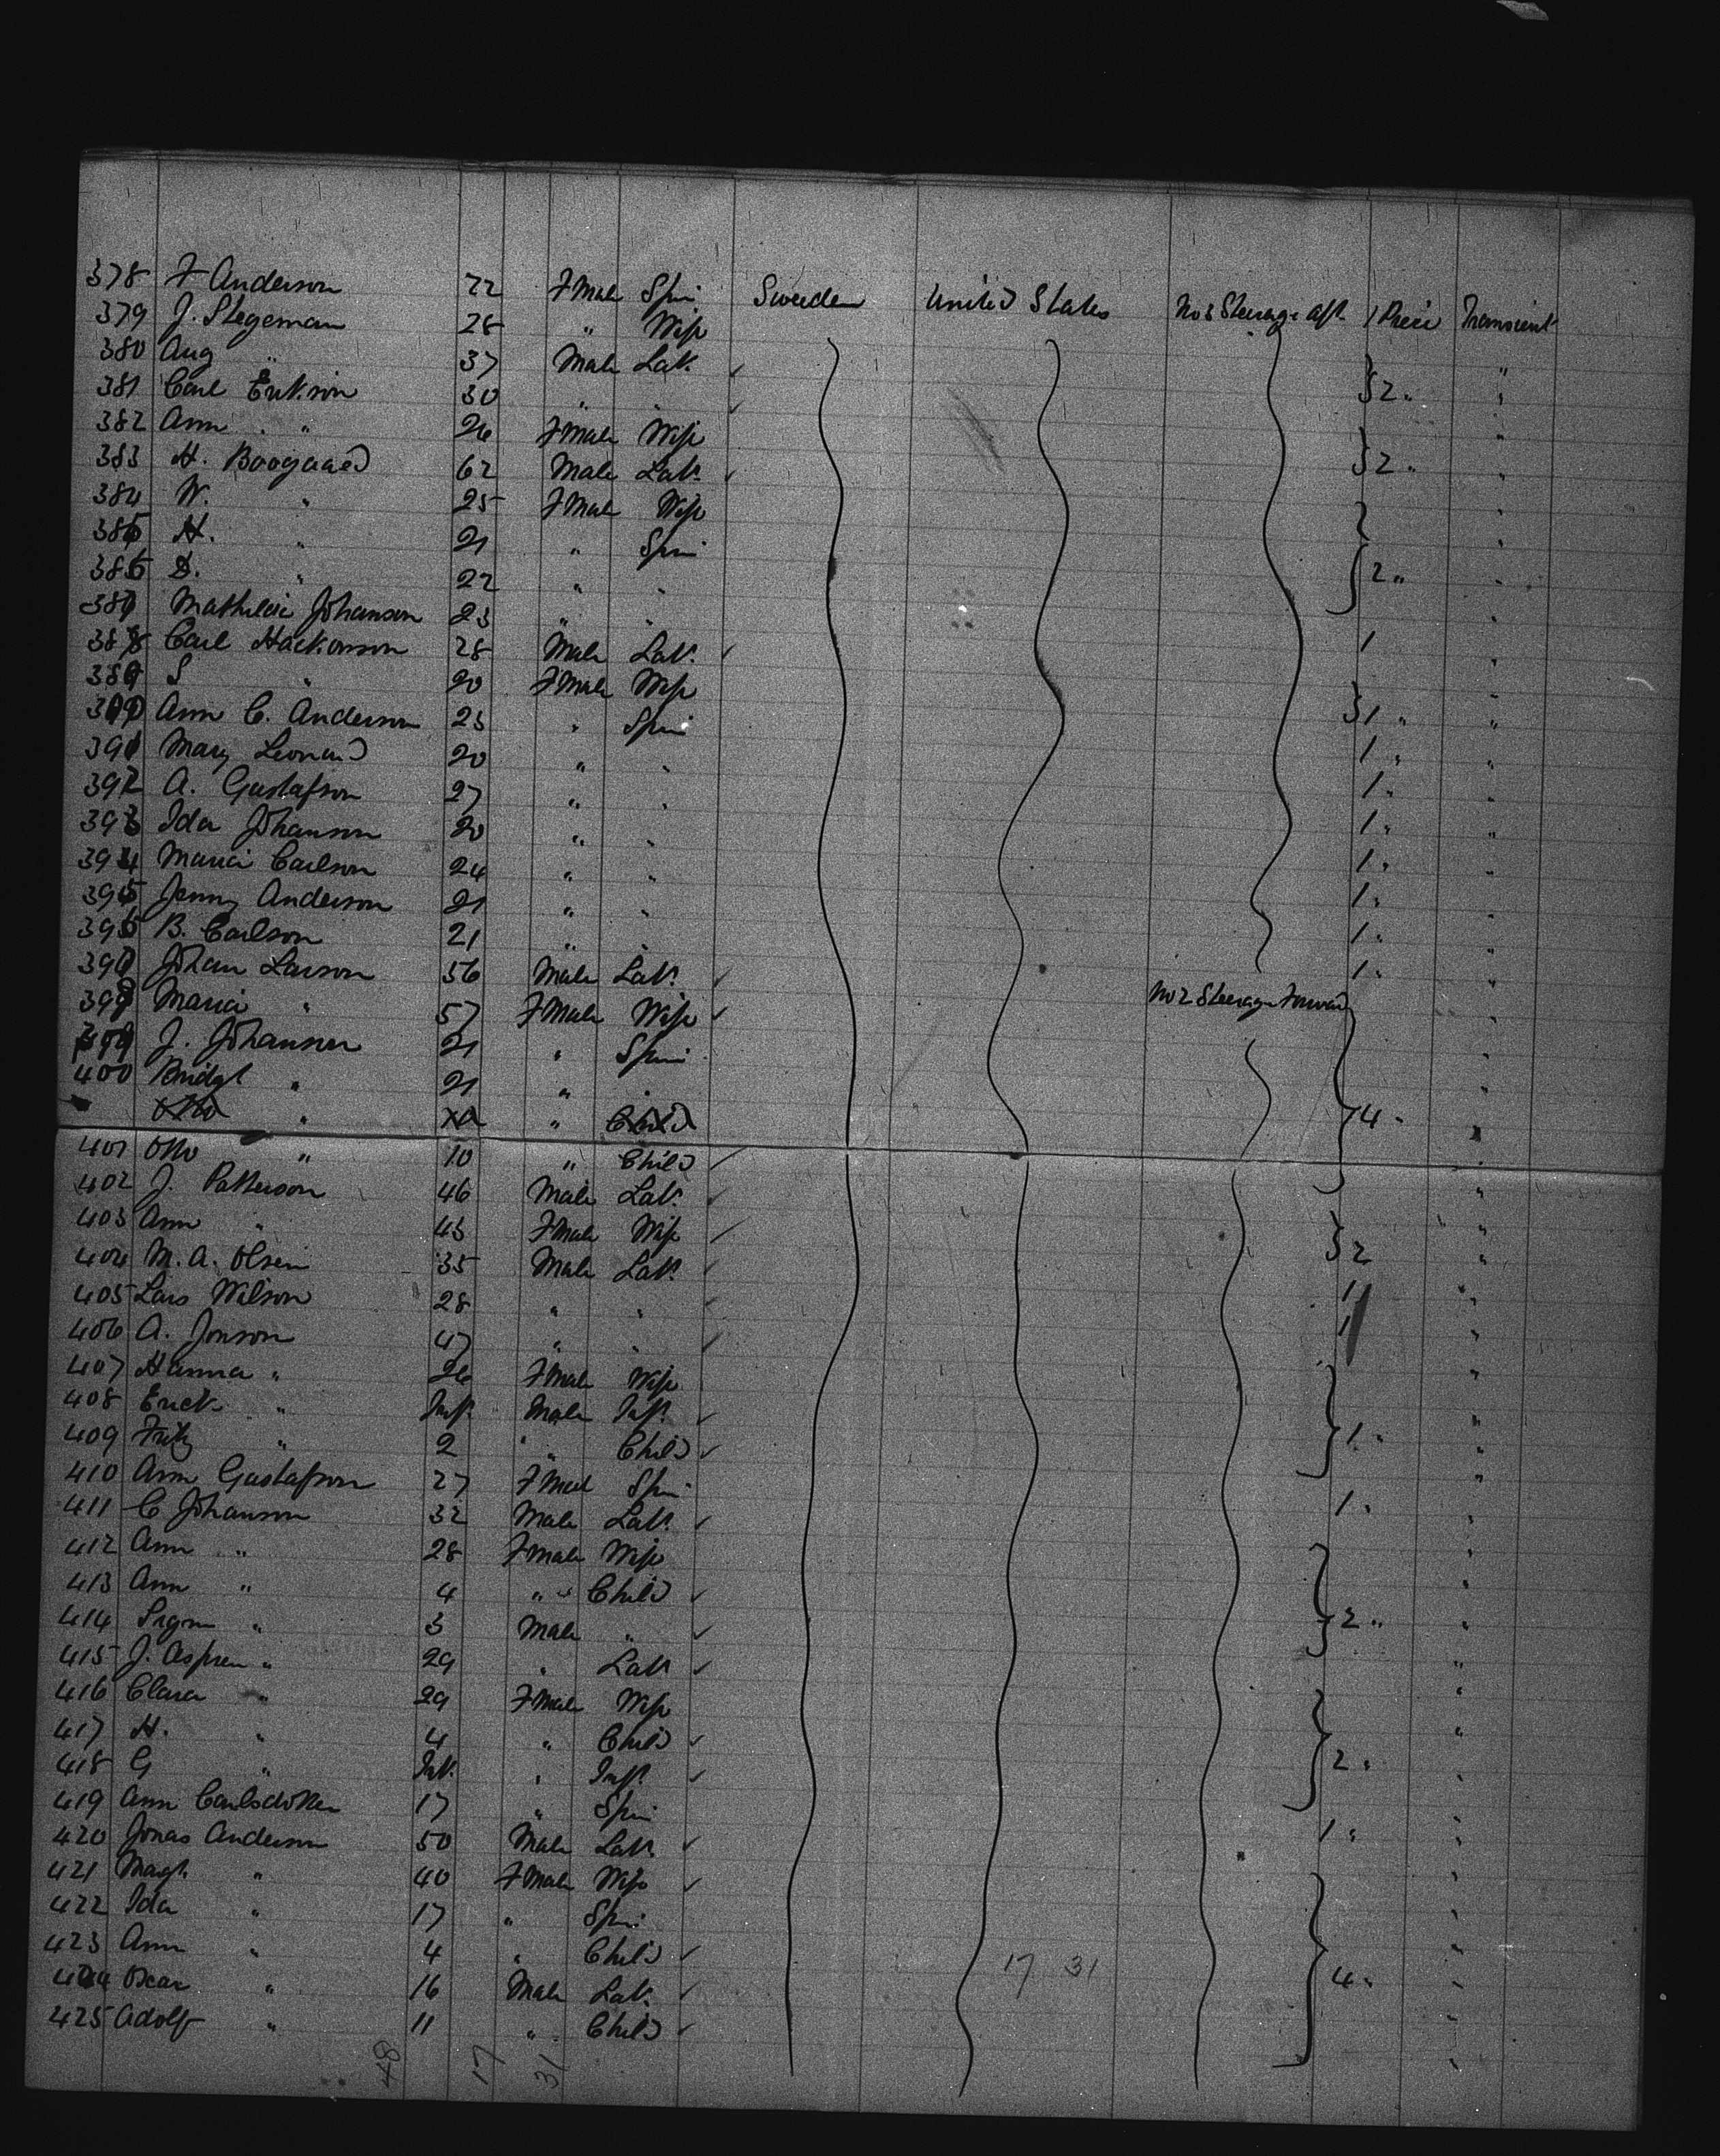 378 F Anderson 22 FMale Spin Sweden United States No 3 Steerage Aft 1 Piece Transient
379 J. Stegeman 28 " Wife
380 Aug " 37 Male Lab. ✓ "
381 Carl Erikson 30 " " ✓ } 2 " "
382 Ann " 26 FMale Wife "
383 H. Boogaard 62 Male Lab. ✓ } 2 " "
384 W. " 25 FMale Wife "
385 H. " 21 " Spin "
386 D. " 22 " " } 2 " "
387 Mathilda Johanson 23 " " "
388 Carl Hackonson 28 Male Lab. ✓ 1 "
389 S " 20 FMale Wife "
390 Ann C. Anderson 23 " Spin } 1 " "
391 Mary Leonard 20 " " 1 " "
392 A. Gustafson 27 " " 1 " "
393 Ida Johanson 20 " " 1 " "
394 Maria Carlson 24 " " 1 " "
395 Jenny Anderson 21 " " 1 " "
396 B. Carlson 21 " " 1 " "
397 Johan Larson 56 Male Lab. ✓ 1 " "
398 Maria " 57 FMale Wife ✓ No 2 Steerage Forward "
399 J. Johanson 21 " Spin "
400 Bridgt " 21 " " "
Otto " " Child } 4 " "
401 Otto " 10 " Child ✓ "
402 J. Patterson 46 Male Lab. ✓ "
403 Ann " 43 FMale Wife ✓ } 2 "
404 M. A. Olsen 35 Male Lab. ✓ "
405 Lars Wilson 28 " " ✓ 1 "
406 A. Jonson 47 " " ✓ 1 "
407 Hanna " 26 FMale Wife "
408 Erick " Inft. Male Inft. ✓ "
409 Fritz " 2 " Child ✓ } 1 " "
410 Ann Gustafson 27 FMale Spin "
411 C Johanson 32 Male Lab. ✓ 1 " "
412 Ann " 28 FMale Wife "
413 Ann " 4 " " Child ✓ "
414 " 3 Male " ✓ } 2 " "
415 J. Aspren " 29 " Lab. ✓ "
416 Clara " 29 FMale Wife "
417 H. " 4 " Child ✓ "
418 G " Inft. " Inft. ✓ } 2 " "
419 Ann Carlsdotter 17 " Spin "
420 Jonas Anderson 50 Male Lab. ✓ 1 " "
421 Magt. " 40 FMale Wife ✓ "
422 Ida " 17 " Spin "
423 Ann " 4 " Child ✓ 17 31 "
424 Oscar " 16 Male Lab. ✓ } 4 " "
425 Adolf " 11 " Child ✓ "
48 17 31